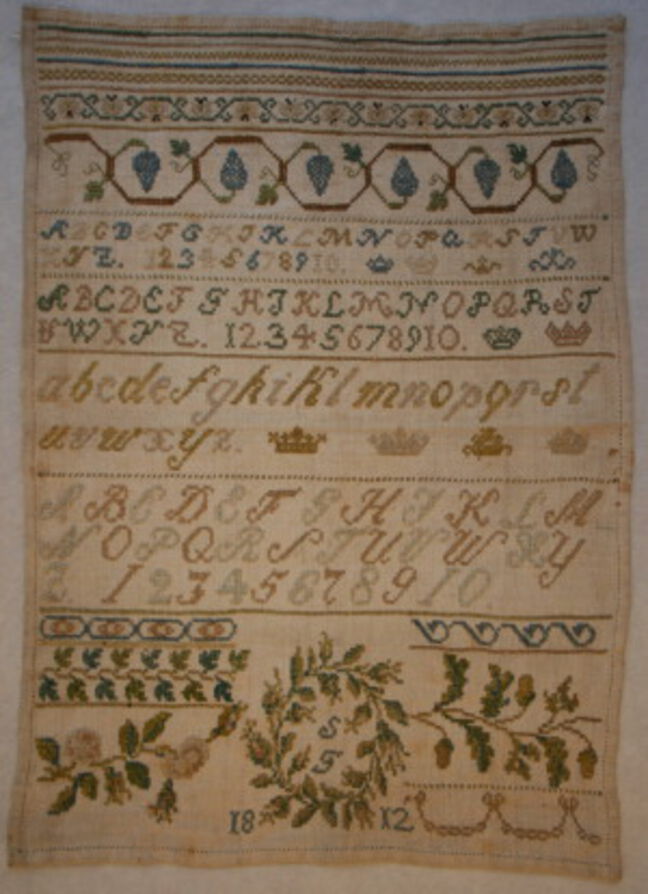 A B C D E F G H I K L M N O P Q R S T U W
X Y Z. 1 2 3 4 5 6 7 8 9 10.
A B C D E F G H I K L M N O P Q R S T
V W X Y Z. 1 2 3 4 5 6 7 8 9 10.
a b c d e f g h i k l m n o p q r s t
u v w x y z.
A B C D E F G H I K L M
N O P Q R S T U V W X Y
Z. 1 2 3 4 5 6 7 8 9 10
S
18 12